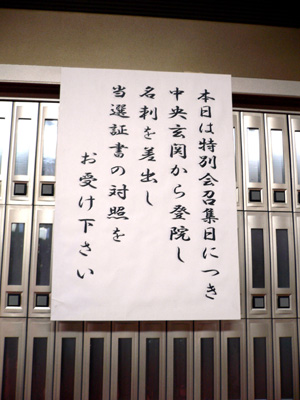 本日は特別会召集日につき
中央玄関から登院し
名刺を差出し
当選証書の対照を
お受け下さい